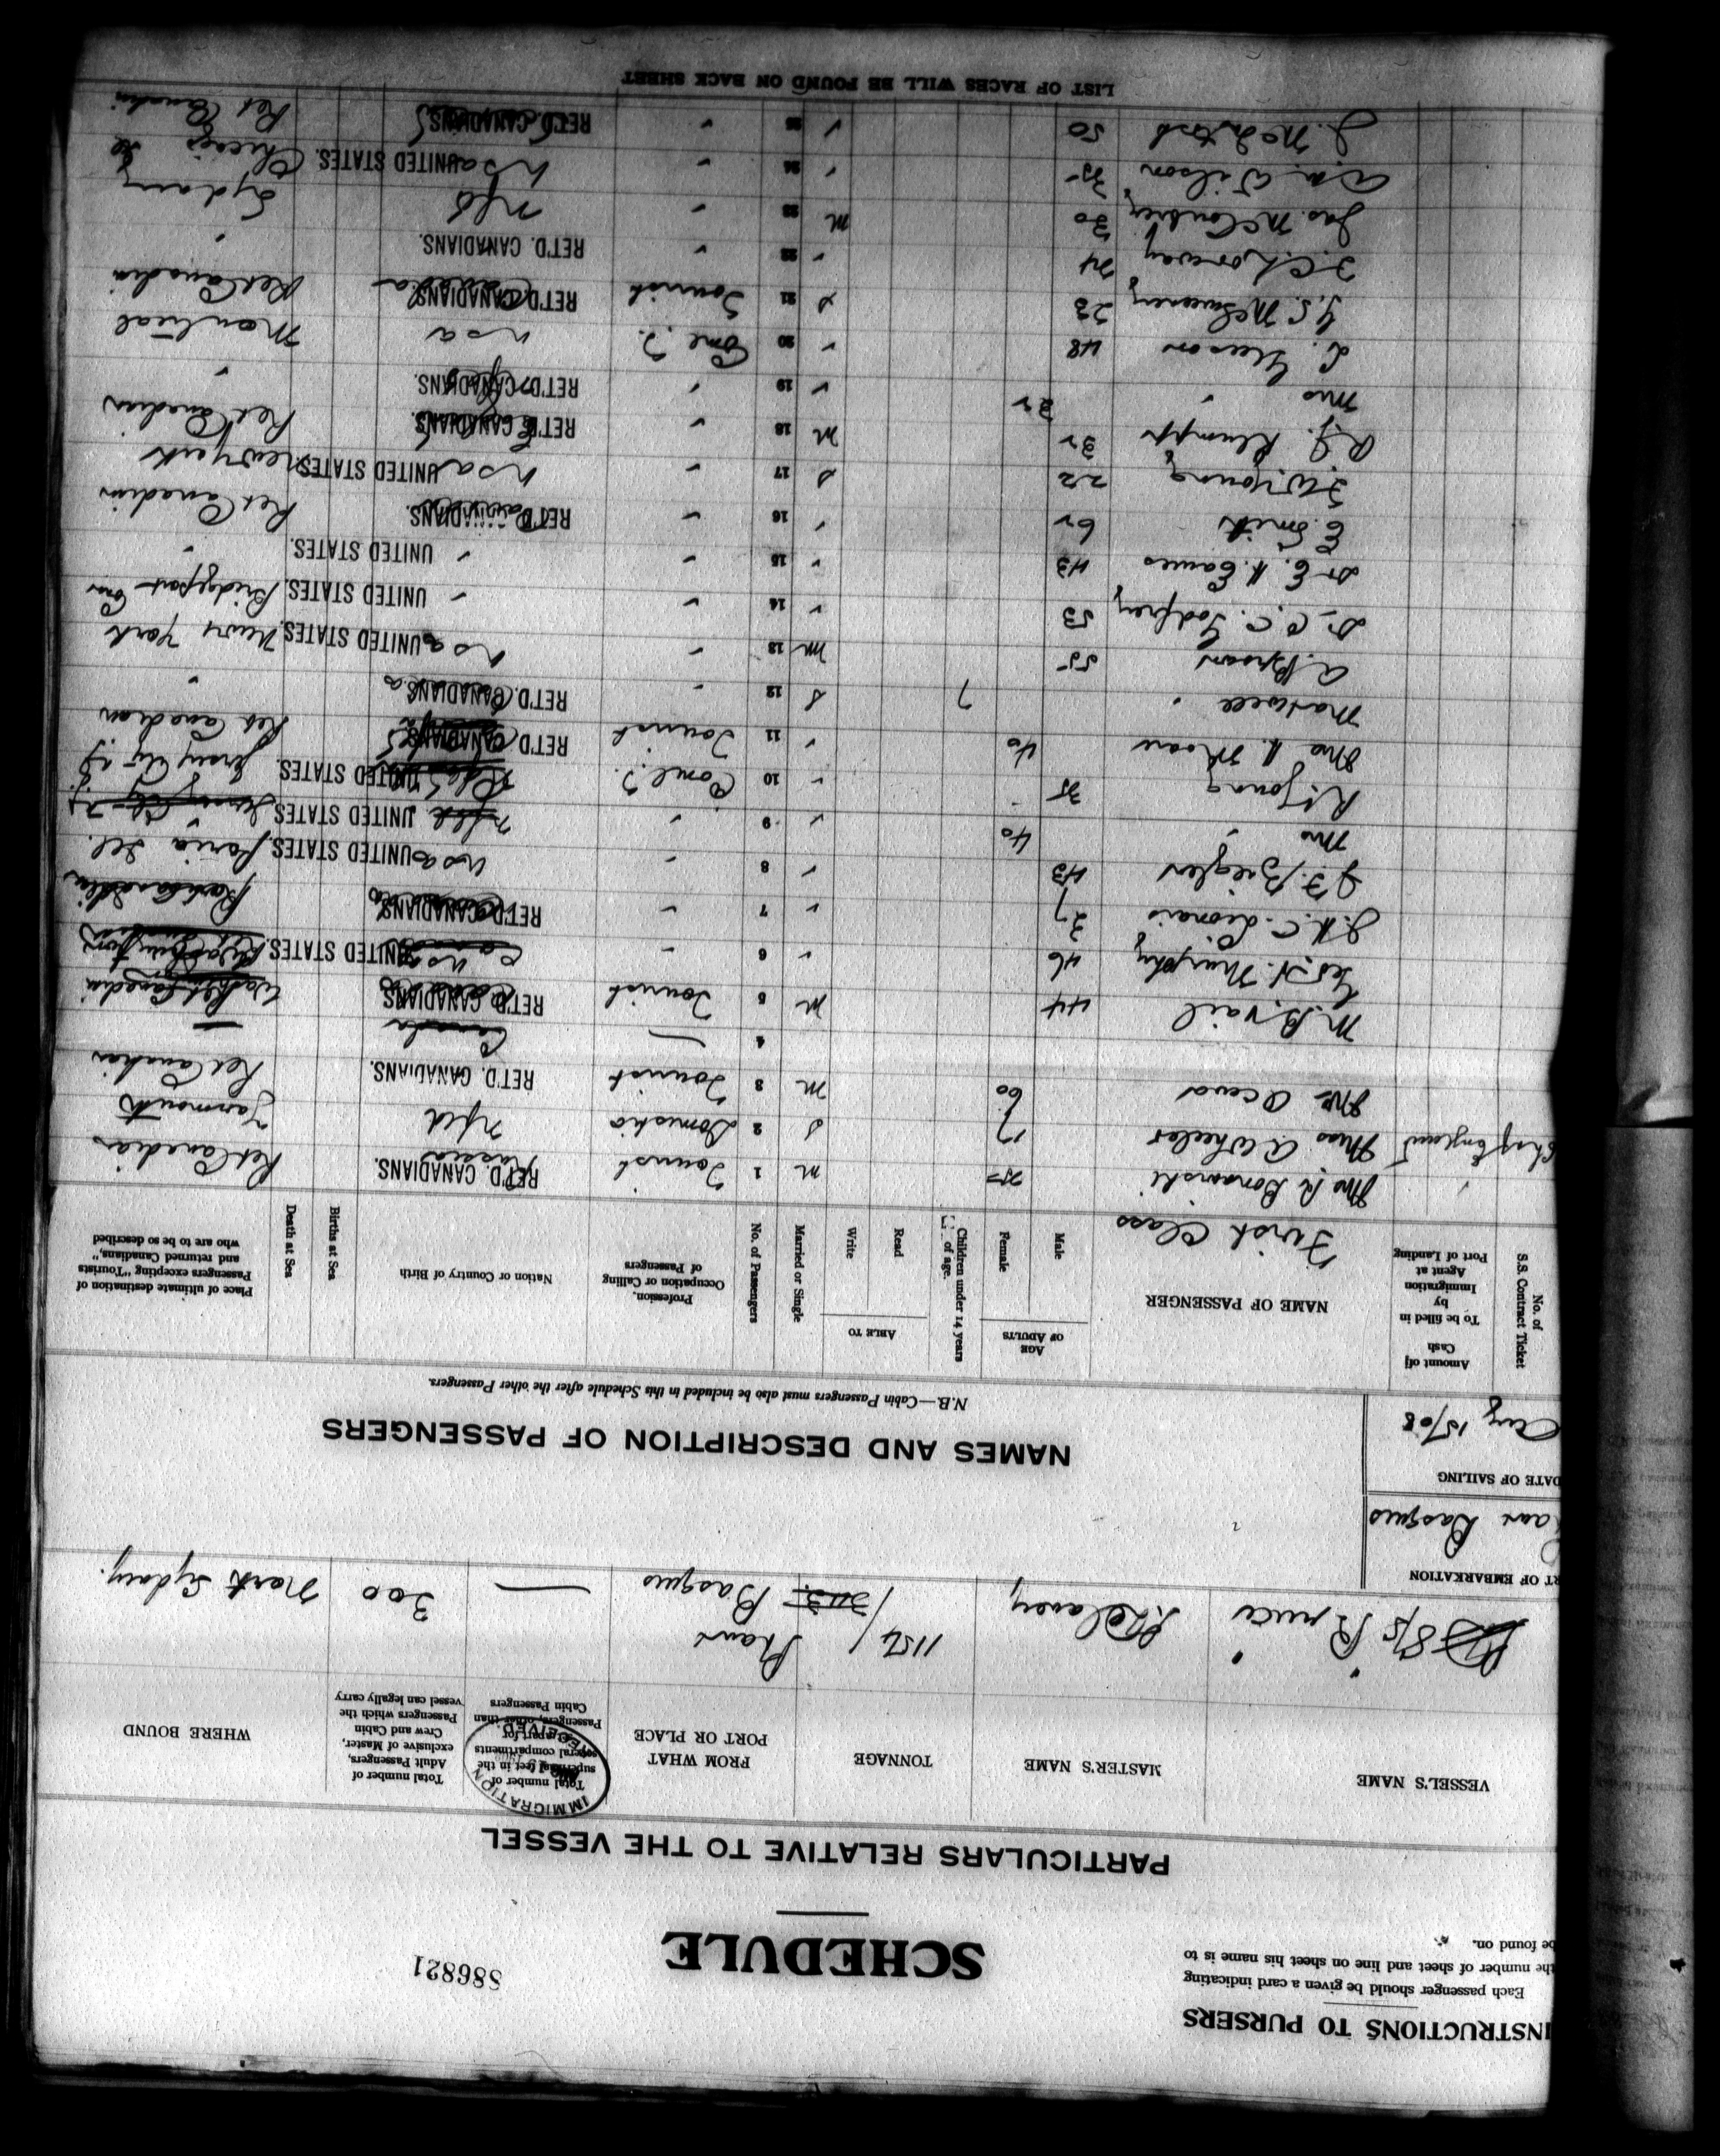 INSTRUCTIONS TO PURSERS
Each passenger should be given a card indicating
the number of sheet and line on sheet his name is to
be found on.
SCHEDULE
S86821
PARTICULARS RELATIVE TO THE VESSEL
VESSEL'S NAME
MASTER'S NAME
TONNAGE
FROM WHAT PORT OR PLACE
Total number of superficial feet in the several compartments set apart for Passengers, other than Cabin Passengers
IMMIGRATION
RECEIVED
Total number of Adult Passengers, exclusive of Master, Crew and Cabin Passengers which the vessel can legally carry
WHERE BOUND
S/S Bruce
Delaney
1154
Basques
300
North Sydney.
RT OF EMBARKATION
Basques
DATE OF SAILING
Aug 15/08
NAMES AND DESCRIPTION OF PASSENGERS
N.B.—Cabin Passengers must also be included in this Schedule after the other Passengers.
No. of S.S. Contract Ticket
Amount of Cash To be filled in by Immigration Agent at Port of Landing
NAME OF PASSENGER
AGE OF ADULTS
Male
Female
Children under 14 years of age.
ABLE TO
Read
Write
Married or Single
No. of Passengers
Profession, Occupation or Calling of Passengers
Nation or Country of Birth
Births at Sea
Death at Sea
Place of ultimate destination of Passengers excepting "Tourists and returned Canadians," who are to be so described
First Class
Mrs R. 25 m 1 Tourist Russia RET'D. CANADIANS. Ret Canadian
Ch of England Miss A Wheeler 17 s 2 Domestic nfld Yarmouth
Mrs 60 m 3 Tourist RET'D. CANADIANS. Ret Canadian
4 — Canada —
M. B. Vail 44 m 5 Tourist RET'D. CANADIANS. Ret Canadian
Geo. N. Murphy 46 ✓ 6 usa UNITED STATES. Washington
J. H. C. 27 ✓ 7 RET'D. CANADIANS. Ret Canadian
J. F. Ziegler 43 ✓ 8 usa UNITED STATES. Peoria Ill.
Mrs " 40 ✓ 9 UNITED STATES.
R Young 35 ✓ 10 Coml T. UNITED STATES. Jersey City N.J.
Mrs H. Moore 40 ✓ 11 Tourist RET'D. CANADIANS. Ret Canadian
Maxwell " 7 s 12 RET'D. CANADIANS. "
A. Brown 55 m 13 usa UNITED STATES. New York
Dr C. C. Godfrey 53 ✓ 14 ✓ UNITED STATES. Bridgeport Conn
Dr E. H. Eames 43 ✓ 15 ✓ UNITED STATES.
E. Smith 62 ✓ 16 RET'D. CANADIANS. Ret Canadian
F. W. Young 22 s 17 usa UNITED STATES. New York
R. J. Klumpp 32 m 18 RET'D. CANADIANS. Ret Canadian
Mrs " 32 ✓ 19 RET'D. CANADIANS. "
L. 48 ✓ 20 Coml T. usa Montreal
J. S. McSweeney 23 s 21 Tourist RET'D. CANADIANS. Ret Canadian
F. C. Loreway 24 ✓ 22 RET'D. CANADIANS. "
Jas. 30 m 23 nfld Sydney
Wilson 35 ✓ 24 usa UNITED STATES. Chicago Ill
J. McIntosh 50 ✓ 25 RET'D. CANADIANS. Ret Canadian
LIST OF RACES WILL BE FOUND ON BACK SHEET